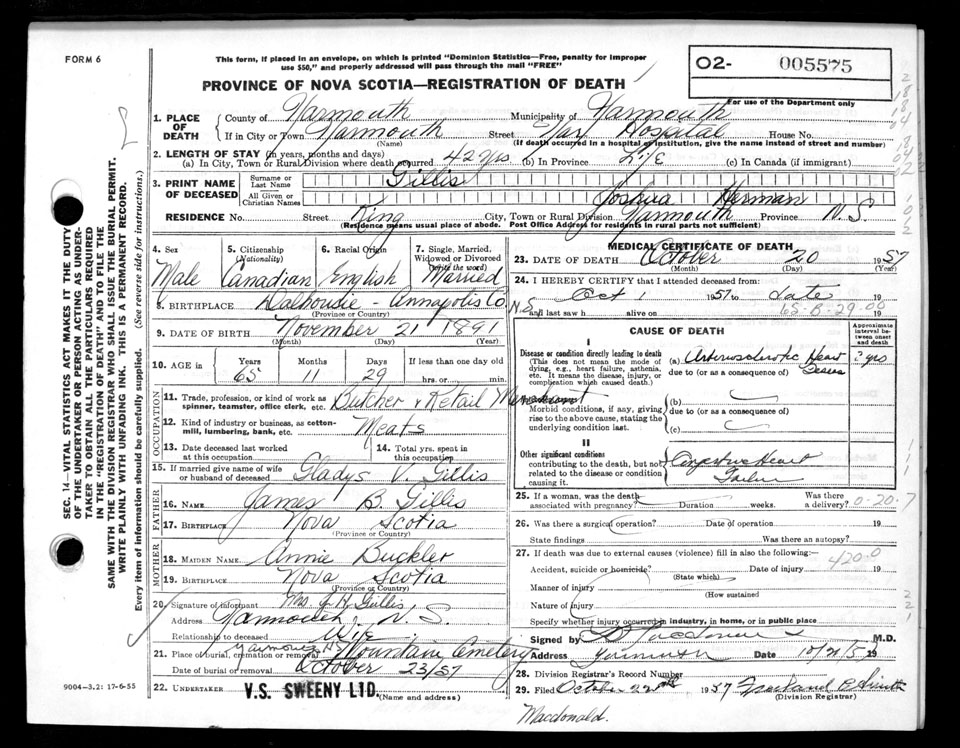 FORM 6
This form, if placed in an envelope, on which is printed "Dominion Statistics—Free, penalty for improper
use $50," and properly addressed will pass through the mail "FREE"
PROVINCE OF NOVA SCOTIA—REGISTRATION OF DEATH
O2- 005575
For use of the Department only
1. PLACE OF DEATH
County of Yarmouth Municipality of Yarmouth
If in City or Town Yarmouth Street Yar Hospital House No.
(Name) (If death occurred in a hospital or institution, give the name instead of street and number)
2. LENGTH OF STAY (in years, months and days)
(a) In City, Town or Rural Division where death occurred 42 yrs (b) In Province Life (c) In Canada (if immigrant)
3. PRINT NAME OF DECEASED
Surname or Last Name Gillis
All Given or Christian Names Joshua Herman
RESIDENCE No. Street King City, Town or Rural Division Yarmouth Province N.S.
(Residence means usual place of abode. Post Office Address for residents in rural parts not sufficient)
4. Sex Male
5. Citizenship (Nationality) Canadian
6. Racial Origin English
7. Single, Married, Widowed or Divorced (Write the word) Married
8. BIRTHPLACE Dalhousie - Annapolis Co. N.S.
(Province or Country)
9. DATE OF BIRTH November 21 1891
(Month) (Day) (Year)
10. AGE in Years 65 Months 11 Days 29 If less than one day old hrs. or min.
OCCUPATION
11. Trade, profession, or kind of work as spinner, teamster, office clerk, etc. Butcher & Retail Merchant
12. Kind of industry or business, as cotton-mill, lumbering, bank, etc. Meats
13. Date deceased last worked at this occupation
14. Total yrs. spent in this occupation
15. If married give name of wife or husband of deceased Gladys V. Gillis
FATHER
16. NAME James B. Gillis
17. BIRTHPLACE Nova Scotia
(Province or Country)
MOTHER
18. MAIDEN NAME Annie Buckler
19. BIRTHPLACE Nova Scotia
(Province or Country)
20. Signature of informant Mrs. J. H. Gillis
Address Yarmouth, N.S.
Relationship to deceased Wife
21. Place of burial, cremation or removal Yarmouth N.S. Mountain Cemetery
Date of burial or removal October 23/57
22. UNDERTAKER V.S. SWEENY LTD.
(Name and address)
9004—3.2: 17-6-55
MEDICAL CERTIFICATE OF DEATH
23. DATE OF DEATH October 20 1957
(Month) (Day) (Year)
24. I HEREBY CERTIFY that I attended deceased from:
Oct 1 1957 to date 19
and last saw h alive on 19
65-8-29-00
CAUSE OF DEATH
Approximate interval between onset and death
I
Disease or condition directly leading to death
(This does not mean the mode of dying, e.g., heart failure, asthenia, etc. It means the disease, injury, or complication which caused death.)
(a) Arteriosclerotic Heart Disease ? yrs
due to (or as a consequence of)
(b)
Morbid conditions, if any, giving rise to the above cause, stating the underlying condition last.
due to (or as a consequence of)
(c)
II
Other significant conditions contributing to the death, but not related to the disease or condition causing it.
Congestive Heart Failure
25. If a woman, was the death associated with pregnancy? Duration weeks. Was there a delivery?
0-20-7
26. Was there a surgical operation? Date of operation 19
State findings Was there an autopsy?
27. If death was due to external causes (violence) fill in also the following:—
420.0
Accident, suicide or homicide? Date of injury 19
(State which)
Manner of injury
(How sustained
Nature of injury
Specify whether injury occurred in industry, in home, or in public place
Signed by M.D.
Address Yarmouth Date 10/21/57 19
28. Division Registrar's Record Number
29. Filed October 22nd 1957
(Division Registrar)
Macdonald.
SEC. 14—VITAL STATISTICS ACT MAKES IT THE DUTY
OF THE UNDERTAKER OR PERSON ACTING AS UNDER-
TAKER TO OBTAIN ALL THE PARTICULARS REQUIRED
IN THE "REGISTRATION OF DEATH" AND TO FILE THE
SAME WITH THE DIVISION REGISTRAR WHO SHALL ISSUE THE BURIAL PERMIT.
WRITE PLAINLY WITH UNFADING INK. THIS IS A PERMANENT RECORD.
Every item of information should be carefully supplied. (See reverse side for instructions.)